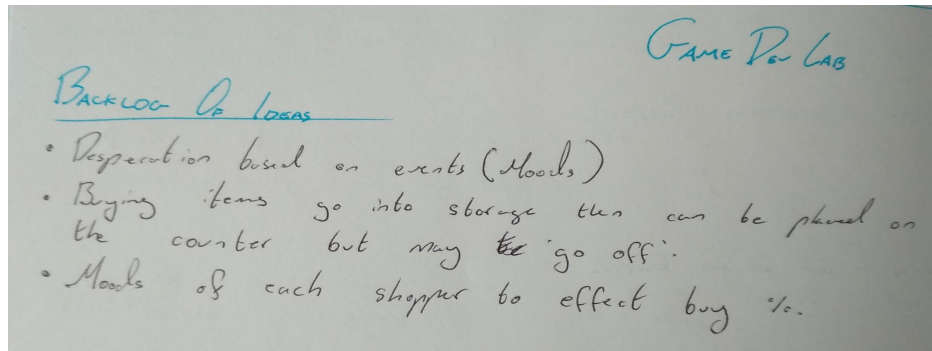 GAME DEV LAB
BACKLOG OF IDEAS
• Desperation based on events (Moods)
• Buying items go into storage then can be placed on
the counter but may 'go off'.
• Moods of each shopper to effect buy %.